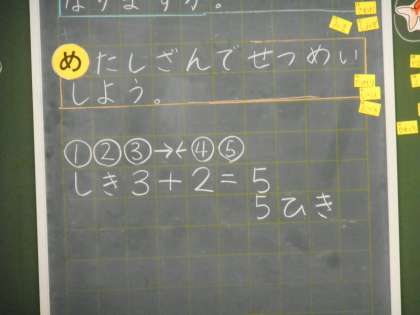 なりますか。
め たしざんでせつめい
しよう。
①②③→←④⑤
しき3+2=5
5ひき